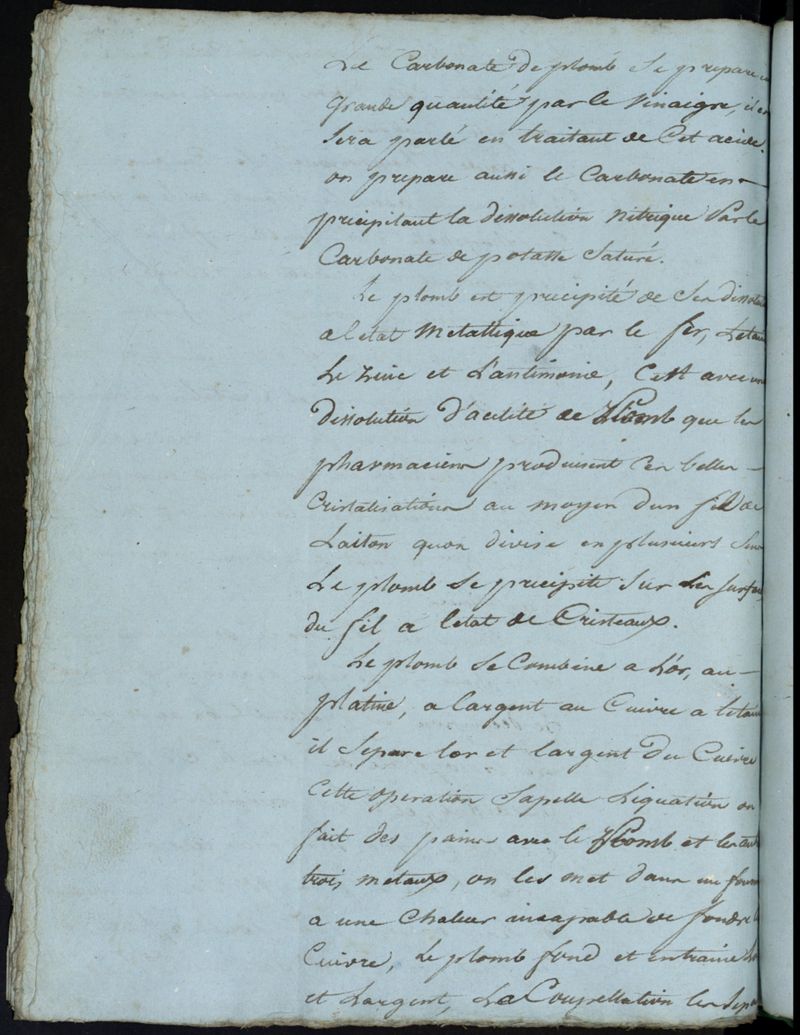 Le Carbonate de plomb se prepare en
grande quantité par le vinaigre, il en
sera parlé en traitant de Cet acide.
on prepare aussi le Carbonate en
precipitant la dissolution nitrique Par le
Carbonate de potasse saturé.
Le plomb est precipité de ses dissolu
a letat metallique par le fer, Letain
Le Zinc et L'antimonie, C'est avec une
dissolution d'acétité de Plomb que les
pharmaciens produisent ces belles
Cristalisations au moyen dun fil de
Laiton quon divise en plusieurs
Le plomb se precipite sur les surfaces
du fil a letat de Cristeaux.
Le plomb se Combine a Lor, au
platine, a largent au Cuivre a letain
il separe lor et largent du Cuivre
Cette operation sapelle Liquation on
fait des pains avec le Plomb et les
trois metaux, on les met dans un fourn
a une Chaleur incapable de fondre le
Cuivre, Le plomb fond et entraine Lor
et Largent, La Coupellation les sepa